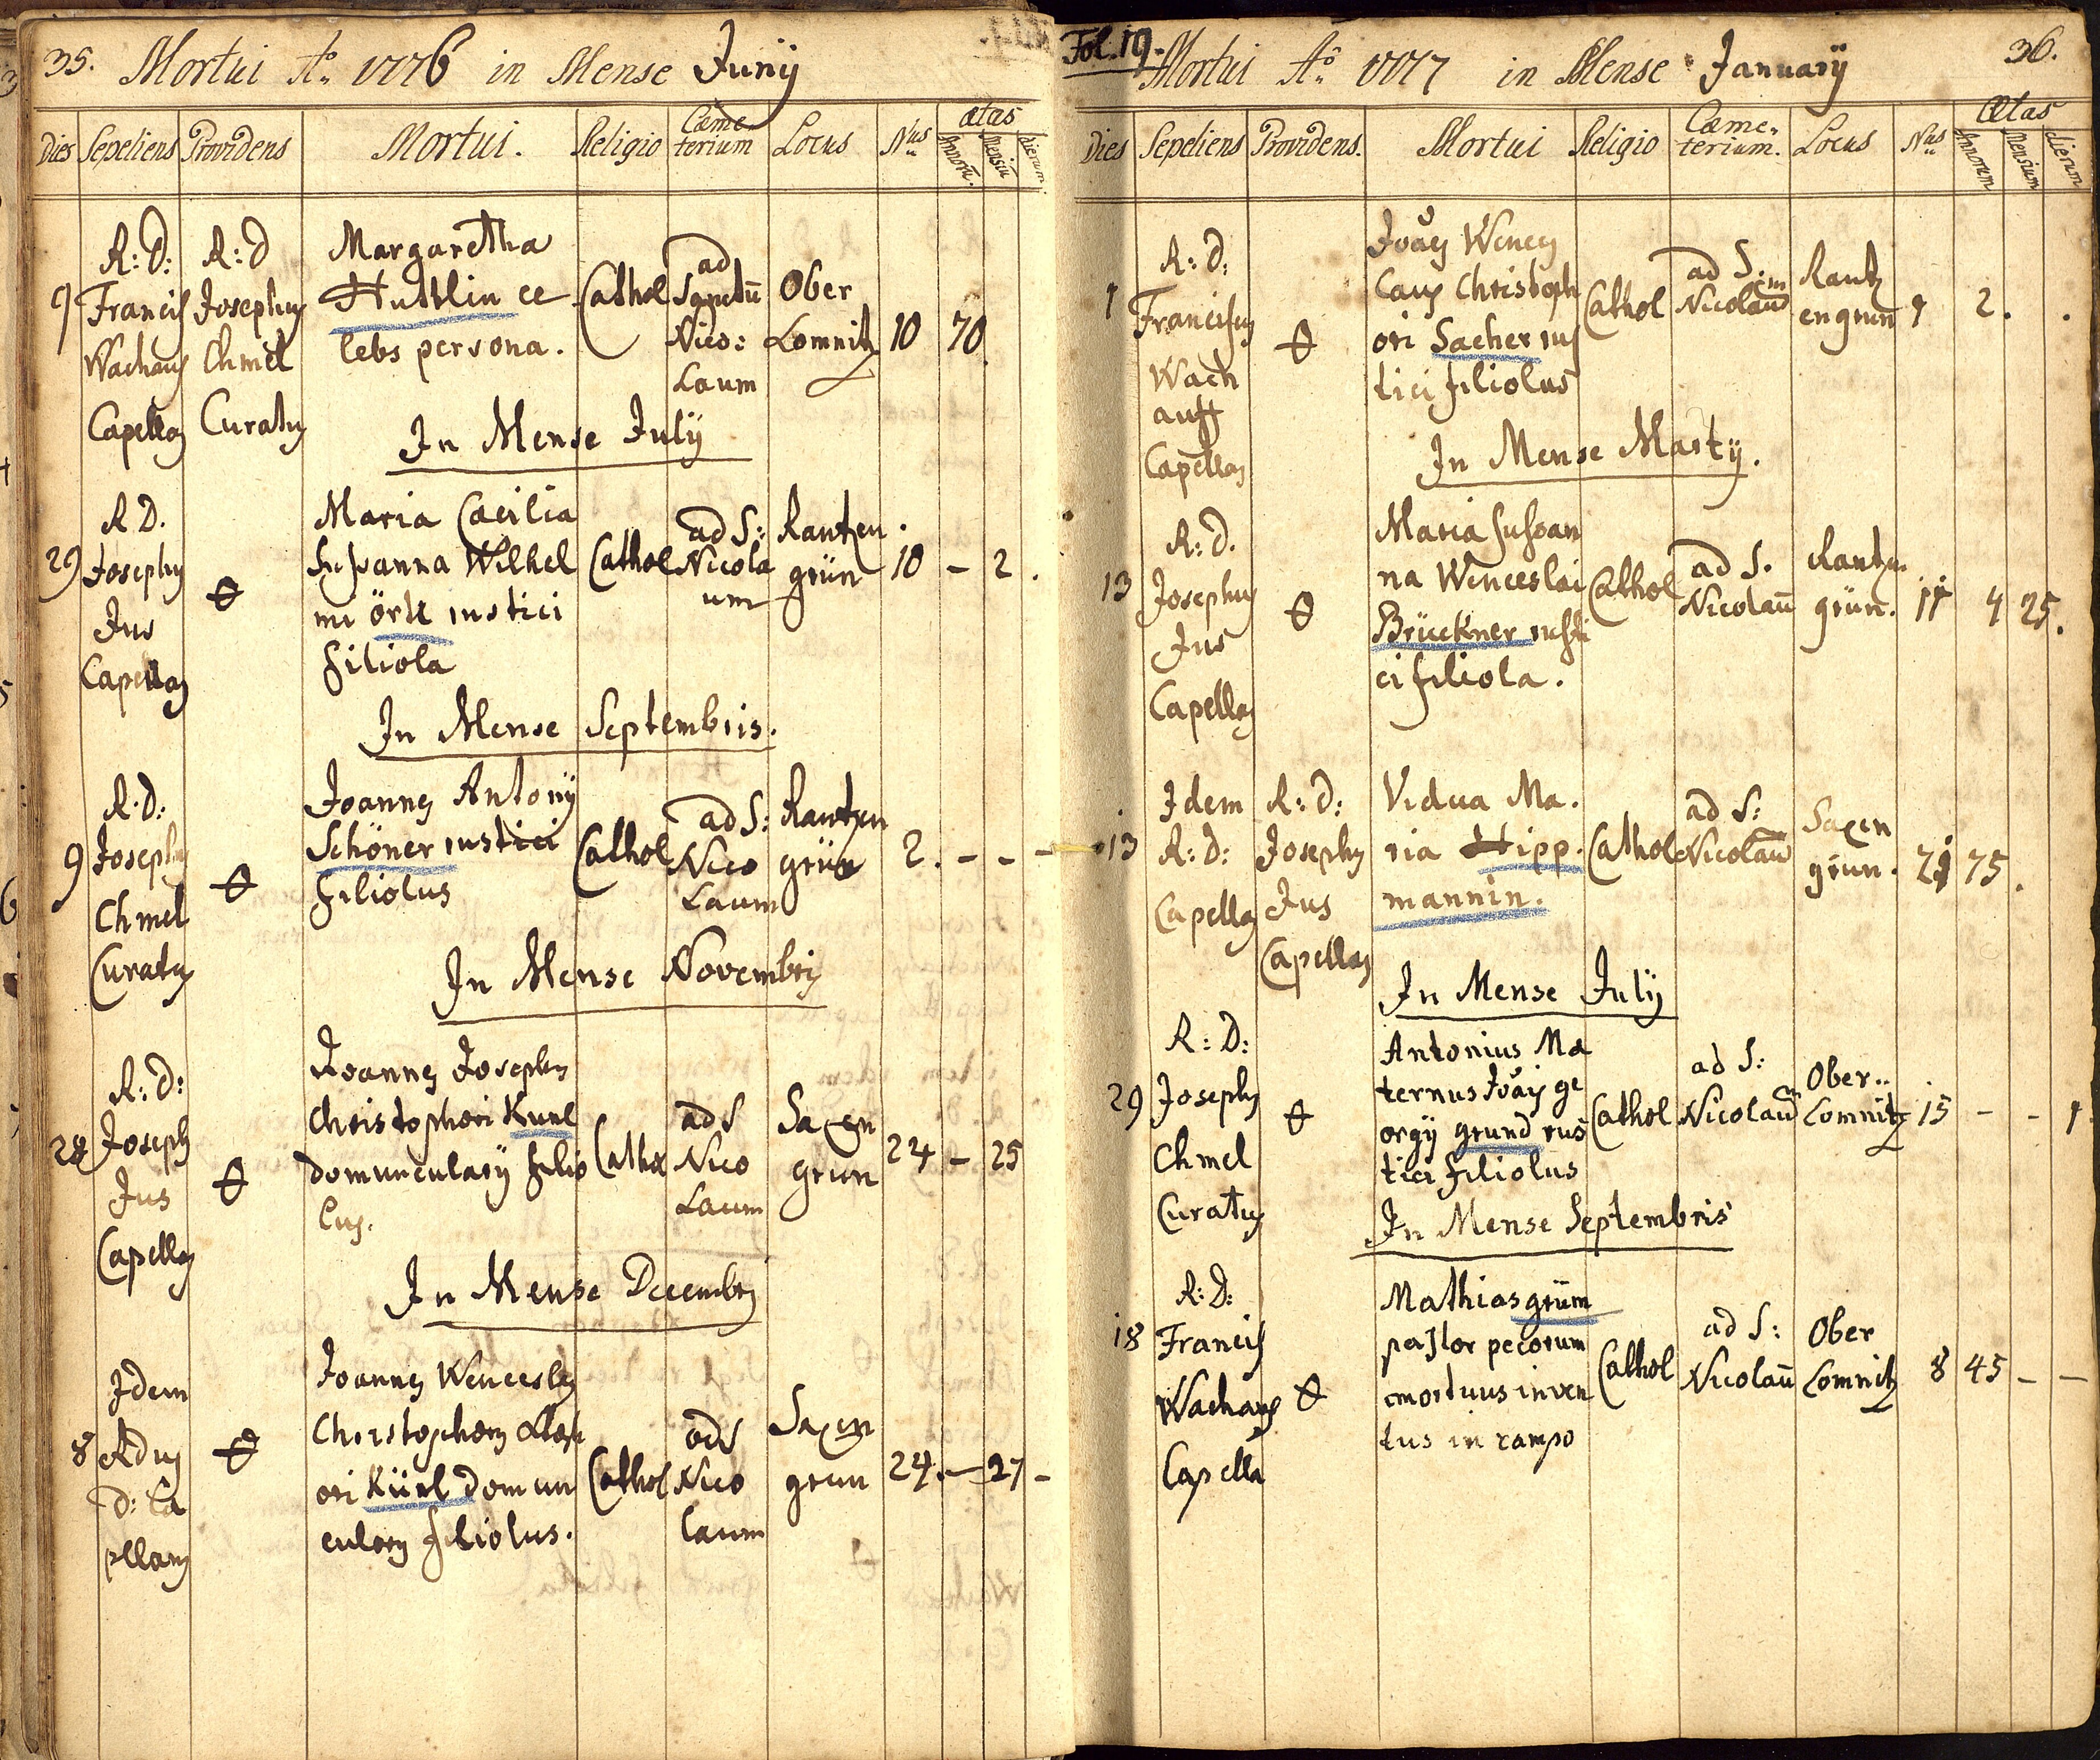 35. Mortui Aō 1776 in Mense Junÿ
Dies Sepeliens Providens Mortui. Religio Cæme- terium Locus Nus ætas
Annorū. Mensiū dierum
9
R: D:
Francisc
Wachaus
Capellas
R: D
Josephus
Chmel
Curatus
Margaretha
Huttlin ce
lebs persona.
Cathol
ad
Sanctū
Nico:
Laum
Ober
Lomnitz
10 70
In Mense Julÿ
29
R D.
Josephus
Jus
Capellas
Maria Cæcilia
Susanna Wilhel
mi örtl rustici
filiola
Cathol
ad S:
Nicola
um
Rantzen
grün
10 - 2.
In Mense Septembris.
9
R: D:
Josephus
Chmel
Curatus
Joannes Antonÿ
Schöner rustici
filiolus
Cathol
ad S:
Nico
Laum
Rantzen
grün
2. - - -
In Mense Novembris
R: D:
Joseph
Jus
Capellas
Joannes Josephus
Christophori Kunl
domuncularÿ filio
lus.
Cathol
ad S
Nico
Laum
Saxen
grun
24 - 25
In Mense Decembris
8
Idem
Adus
D: Ca
pellanus
Joannes Wenceslaus
ori Künl domun
cularÿ filiolus.
Cathol
ad S
Nico
laum
Saxen
grun
24. - 27 -
Fol. 19. Mortui Aō 1777 in Mense Januarÿ 36.
Dies Sepeliens Providens. Mortui Religio Cæme- terium. Locus Nus Ætas
Annorum Mensium dierum
1
R: D:
Franciscus
Wach
auff
Capellas
Joaēs Wences
laus Christoph
ori Sacher rus
tici filiolus
Cathol
ad S.
Nicolauem
Rantz
engrun
9 2. .
In Mense Martÿ.
13
R: D.
Josephus
Jus
Capellas
Maria Susan
na Wenceslai
Brückner rusti
ci filiola.
Cathol
ad S.
Nicolaū
Rantzen
grün.
11 4 25.
13
Idem
R: D:
Capellas
R: D:
Josephus
Jus
Capellas
Vidua Ma.
ria Hipp.
mannin.
Cathol
ad S:
Nicolaū
Saxen
grun.
75.
In Mense Julÿ
29
R: D:
Josephus
Chmel
Curatus
Antonius Ma
ternus Joāis ge
orgÿ grund rus
tici filiolus
Cathol
ad S:
Nicolaū
Ober..
Lomnitz
15 - - 1
In Mense Septembris
18
R: D:
Francisc
Wachaus
Capella
Mathias grüm
pastor pecorum
mortuus inven
tus in campo
Cathol
ad S:
Nicolaū
Ober
Lomnitz
8 45 - -